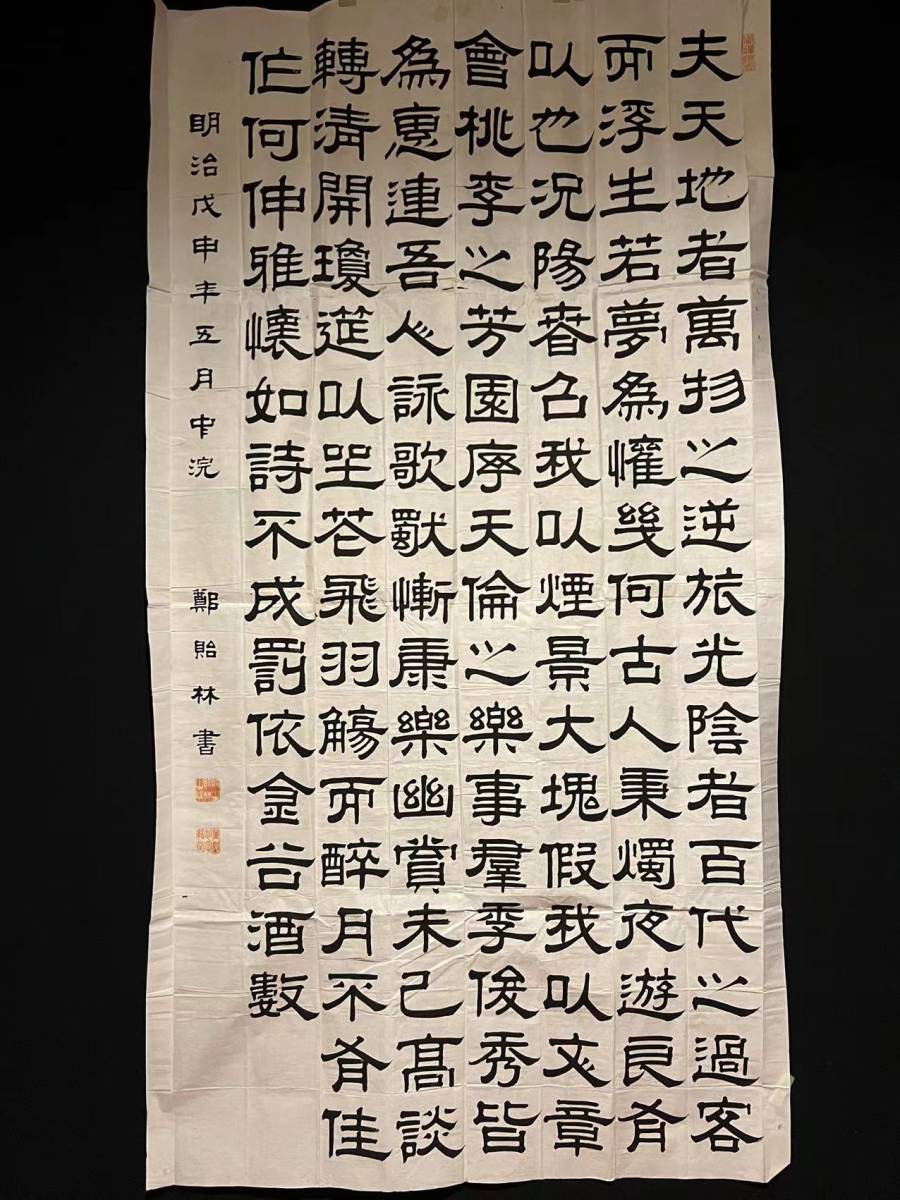 夫天地者萬物之逆旅光陰者百代之過客
而浮生若夢為懽幾何古人秉燭夜遊良有
以也況陽春召我以煙景大塊假我以文章
會桃李之芳園序天倫之樂事羣季俊秀皆
為惠連吾人詠歌獨慚康樂幽賞未已高談
轉清開瓊筵以坐花飛羽觴而醉月不有佳
作何伸雅懷如詩不成罰依金谷酒數
明治戊申年五月中浣
鄭貽林書